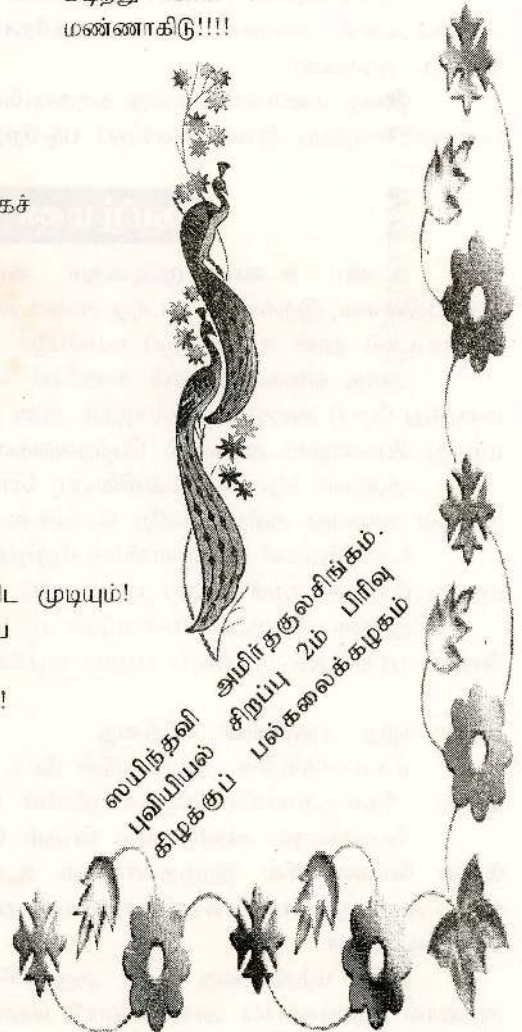 மண்ணாகிடு!!!!
கச்
ட முடியும்!
!
ஸயிந்தவி அமிர்தகுலசிங்கம்.
புவியியல் சிறப்பு 2ம் பிரிவு
கிழக்குப் பல்கலைக்கழகம்